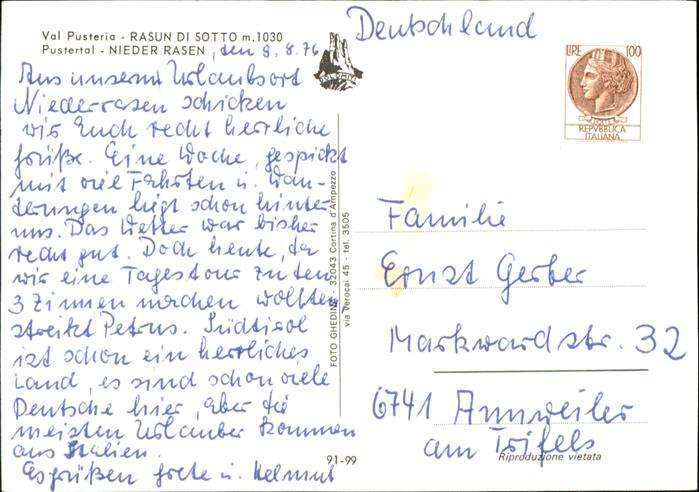 Val Pusteria - RASUN DI SOTTO m. 1030
Pustertal - NIEDER RASEN, den 9. 8. 76
Aus unserm Urlaubsort
Niederrasen schicken
wir Euch recht herzliche
Grüße. Eine Woche, gespickt
mit viel Fahrten u. Wan-
derungen liegt schon hinter
uns. Das Wetter war bisher
recht gut. Doch heute, da
wir eine Tagestour zu den
3 Zinnen machen wollten
streikt Petrus. Südtirol
ist schon ein herrliches
Land, es sind schon viele
Deutsche hier, aber die
meisten Urlauber kommen
aus Italien.
Es grüßen Grete u. Helmut
FOTO GHEDINA - 32043 Cortina d'Ampezzo
via Verocai 45 - tel. 3505
91-99
Deutschland
LIRE 100
REPVBBLICA
ITALIANA
Familie
Ernst Gerber
Markwardstr. 32
6741 Annweiler
am Trifels
Riproduzione vietata